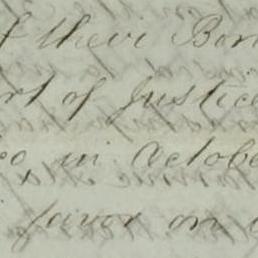 of their Bon
rt of Justice
co, in Octobe
favor on